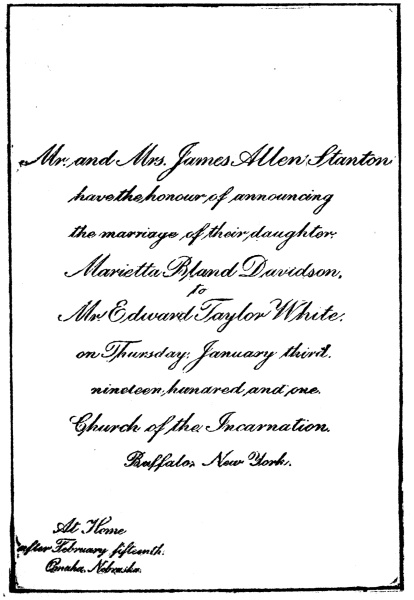 Mr. and Mrs. James Allen Stanton
have the honour of announcing
the marriage of their daughter
Marietta Bland Davidson,
to
Mr. Edward Taylor White.
on Thursday, January third.
nineteen hundred and one.
Church of the Incarnation.
Buffalo, New York.
At Home
after February fifteenth.
Omaha, Nebraska.